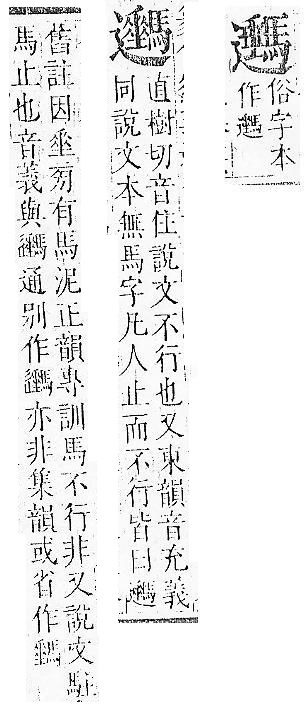 俗字本
作
直樹切音住說文不行也又東韻音充義
同說文本無馬字凡人止而不行皆曰
舊註因旁有馬泥正韻專訓馬不行非又說文駐
馬止也音義與通別作亦非集韻或省作